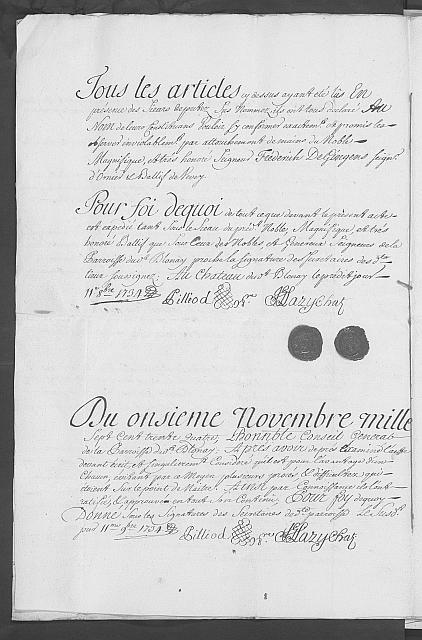 Tous les articles cy dessus ayant été lûs En
presence des Sieurs deputez Sus Nommez, ils ont tous declaré Au
Nom de leurs Constituans Vouloir s'y conformer exactem.t et promis les
observer inviolablem.t par attouchement de mains du Noble
Magnifique, et tres honoré Seigneur Frederich De Gingens Seign.r
d'Ornier & Ballif de Vevey
Pour foi dequoi de tout ce que devant le present acte
est expedié tant Sous le Sceau du préd.t Noble, Magnifique, et très
honoré Ballif que Sous Ceux des Nobles et Genereux Seigneurs de la
Parroisse du d.t Blonay, proche la Signature des Secretaires des d.ts
Lieux Soussignez; Au Chateau du d.t Blonay le prédit jour
11.e 8bre 1734
Pilliod Sec.re Mazychaz
Du onsieme Novembre mille
Sept Cent trente quatre, L'honnble Conseil General
de la Parroisse du d.t Blonay. Après avoir de près Examiné l'acte
devant écrit, et Singulierem.t Consideré qu'il est pour l'avantage d'un
Chacun, evitant par ce Moyen plusieurs procès & difficultez qui
étoient Sur le point de Naitre, L'a
ratifié, & approuvé en tout Son Contenu, Pour foy dequoy
Donné Sous les Signatures des Secretaires de d.te parroisse Le Susd.t
jour 11.me 9bre 1734
Pilliod Sec.re Mazychaz
8